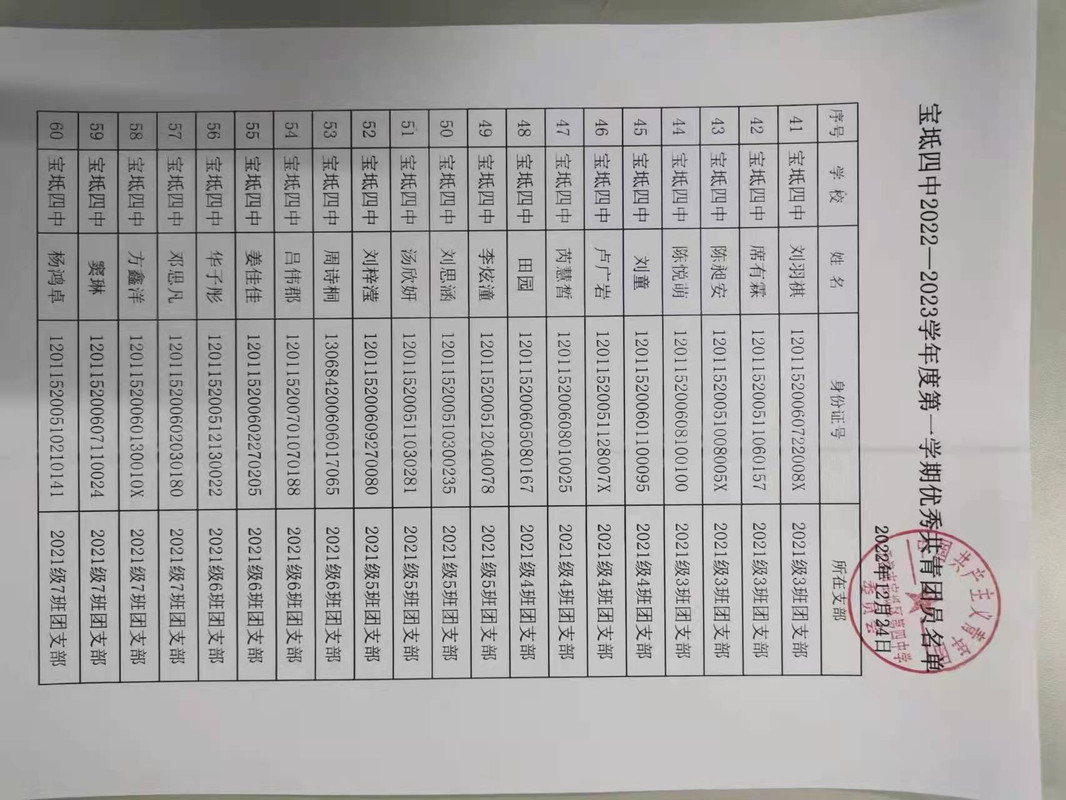 宝坻四中2022—2023学年度第一学期优秀共青团员名单
2022年12月24日
序号 学校 姓名 身份证号 所在支部
41 宝坻四中 刘羽祺 12011520060722008X 2021级3班团支部
42 宝坻四中 席有霖 120115200511060157 2021级3班团支部
43 宝坻四中 陈昶安 12011520051008005X 2021级3班团支部
44 宝坻四中 陈悦萌 120115200608100100 2021级3班团支部
45 宝坻四中 刘童 120115200601100095 2021级4班团支部
46 宝坻四中 卢广岩 12011520051128007X 2021级4班团支部
47 宝坻四中 芮慧皙 120115200608010025 2021级4班团支部
48 宝坻四中 田园 120115200605080167 2021级4班团支部
49 宝坻四中 李炫潼 120115200512040078 2021级5班团支部
50 宝坻四中 刘思涵 120115200510300235 2021级5班团支部
51 宝坻四中 汤欣妍 120115200511030281 2021级5班团支部
52 宝坻四中 刘梓滢 120115200609270080 2021级5班团支部
53 宝坻四中 周诗桐 130684200606017065 2021级6班团支部
54 宝坻四中 吕伟郡 120115200701070188 2021级6班团支部
55 宝坻四中 姜佳佳 120115200602270205 2021级6班团支部
56 宝坻四中 华子彤 120115200512130022 2021级6班团支部
57 宝坻四中 邓思凡 120115200602030180 2021级7班团支部
58 宝坻四中 方鑫洋 12011520060130010X 2021级7班团支部
59 宝坻四中 窦琳 120115200607110024 2021级7班团支部
60 宝坻四中 杨鸿卓 120115200510210141 2021级7班团支部